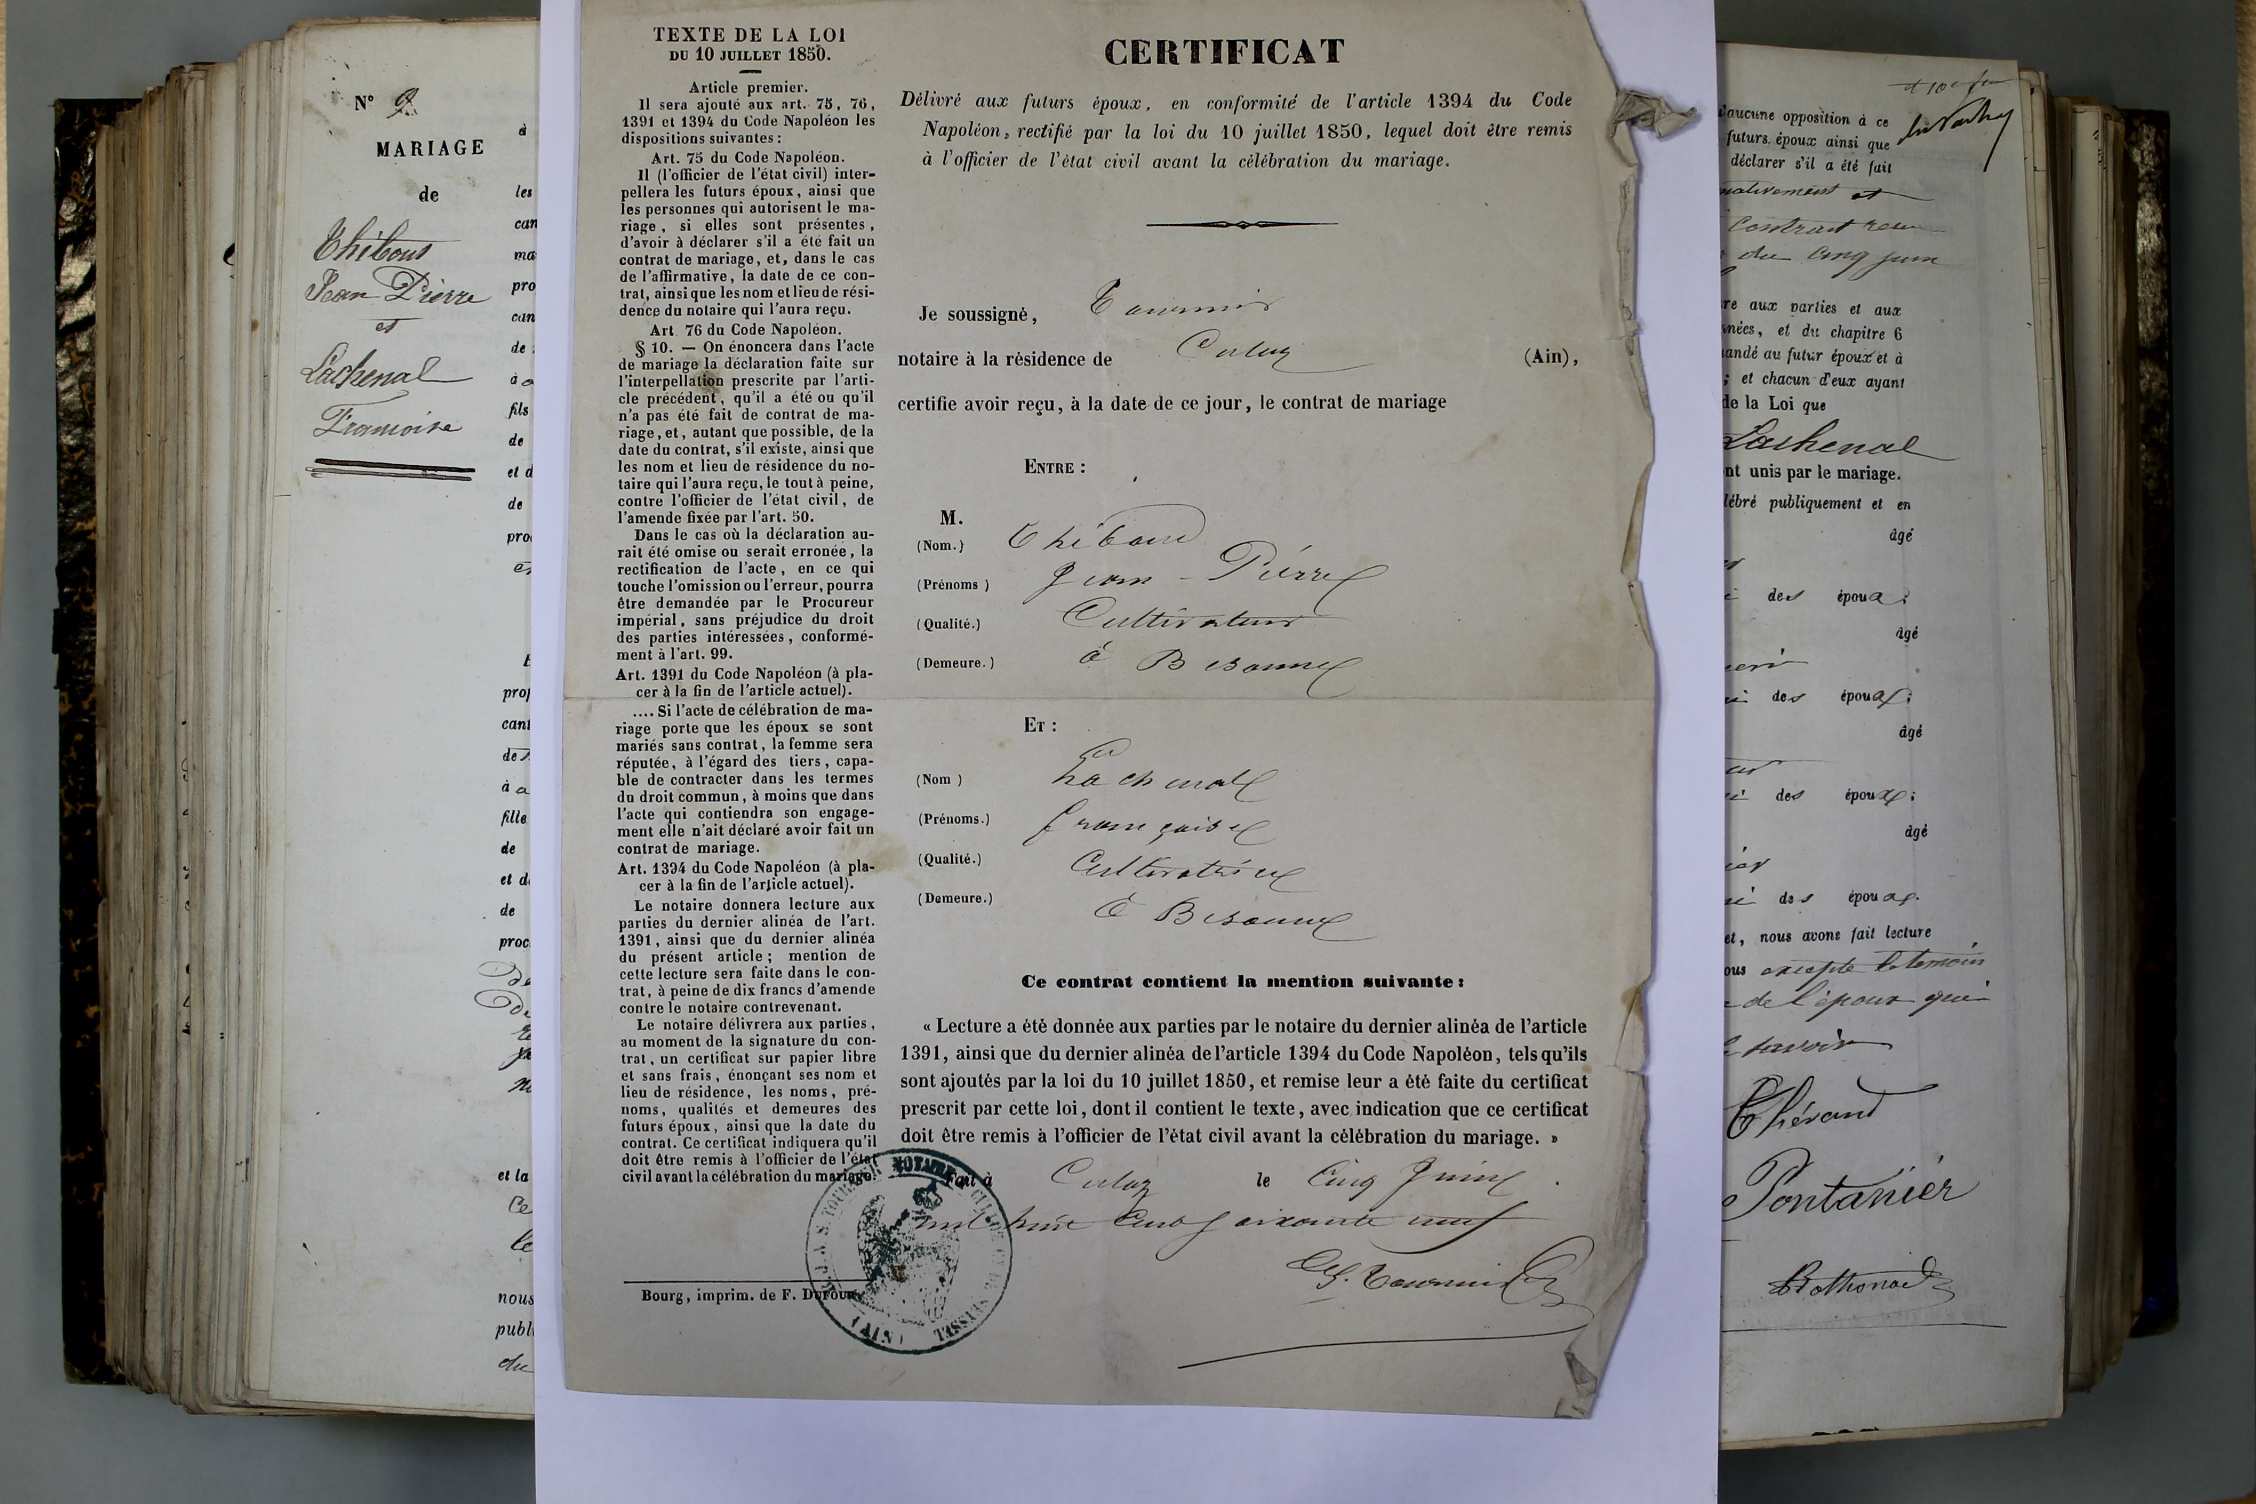 N° 9
MARIAGE
de
Thiboud
Jean Pierre
et
Lachenal
Francoise
à
les
can
ma
pro
can
de
à
fils
de
et d
de
pro
prof
cant
des
à a
fille
de
et de
de
proc
et la
Ce
le
nous
publ
du
TEXTE DE LA LOI
DU 10 JUILLET 1850.
Article premier.
Il sera ajouté aux art. 75, 76,
1391 et 1394 du Code Napoléon les
dispositions suivantes :
Art. 75 du Code Napoléon.
Il (l'officier de l'état civil) inter-
pellera les futurs époux, ainsi que
les personnes qui autorisent le ma-
riage, si elles sont présentes,
d'avoir à déclarer s'il a été fait un
contrat de mariage, et, dans le cas
de l'affirmative, la date de ce con-
trat, ainsi que les nom et lieu de rési-
dence du notaire qui l'aura reçu.
Art. 76 du Code Napoléon.
§ 10. — On énoncera dans l'acte
de mariage la déclaration faite sur
l'interpellation prescrite par l'arti-
cle précédent, qu'il a été ou qu'il
n'a pas été fait de contrat de ma-
riage, et, autant que possible, de la
date du contrat, s'il existe, ainsi que
les nom et lieu de résidence du no-
taire qui l'aura reçu, le tout à peine,
contre l'officier de l'état civil, de
l'amende fixée par l'art. 50.
Dans le cas où la déclaration au-
rait été omise ou serait erronée, la
rectification de l'acte, en ce qui
touche l'omission ou l'erreur, pourra
être demandée par le Procureur
impérial, sans préjudice du droit
des parties intéressées, conformé-
ment à l'art. 99.
Art. 1391 du Code Napoléon (à pla-
cer à la fin de l'article actuel).
.... Si l'acte de célébration de ma-
riage porte que les époux se sont
mariés sans contrat, la femme sera
réputée, à l'égard des tiers, capa-
ble de contracter dans les termes
du droit commun, à moins que dans
l'acte qui contiendra son engage-
ment elle n'ait déclaré avoir fait un
contrat de mariage.
Art. 1394 du Code Napoléon (à pla-
cer à la fin de l'article actuel).
Le notaire donnera lecture aux
parties du dernier alinéa de l'art.
1391, ainsi que du dernier alinéa
du présent article; mention de
cette lecture sera faite dans le con-
trat, à peine de dix francs d'amende
contre le notaire contrevenant.
Le notaire délivrera aux parties,
au moment de la signature du con-
trat, un certificat sur papier libre
et sans frais, énonçant ses nom et
lieu de résidence, les noms, pré-
noms, qualités et demeures des
futurs époux, ainsi que la date du
contrat. Ce certificat indiquera qu'il
doit être remis à l'officier de l'état
civil avant la célébration du mariage.
Bourg, imprim. de F. DUFOUR
CERTIFICAT
Délivré aux futurs époux, en conformité de l'article 1394 du Code
Napoléon, rectifié par la loi du 10 juillet 1850, lequel doit être remis
à l'officier de l'état civil avant la célébration du mariage.
Je soussigné, Tournier
notaire à la résidence de Culoz (Ain),
certifie avoir reçu, à la date de ce jour, le contrat de mariage
ENTRE :
M.
(Nom.) Thiboud
(Prénoms) Jean-Pierre
(Qualité.) Cultivateur
(Demeure.) à Béeonne
ET :
(Nom) Lachenal
(Prénoms.) françoise
(Qualité.) Cultivatrice
(Demeure.) à Béeonne
Ce contrat contient la mention suivante :
« Lecture a été donnée aux parties par le notaire du dernier alinéa de l'article
1391, ainsi que du dernier alinéa de l'article 1394 du Code Napoléon, tels qu'ils
sont ajoutés par la loi du 10 juillet 1850, et remise leur a été faite du certificat
prescrit par cette loi, dont il contient le texte, avec indication que ce certificat
doit être remis à l'officier de l'état civil avant la célébration du mariage. »
Fait à Culoz le Cinq Juin
mil huit Cent soixante neuf
Tournier
NOTAIRE A CULOZ CON DE SEYSSEL (AIN)
d'aucune opposition à ce
futurs époux ainsi que
déclarer s'il a été fait
et
Contrat recu
du Cinq juin
re aux parties et aux
nées, et du chapitre 6
andé au futur époux et à
; et chacun d'eux ayant
de la Loi que
Lachenal
nt unis par le mariage.
lébré publiquement et en
âgé
des époux ;
âgé
des époux ;
âgé
des époux ;
âgé
des époux.
et, nous avons fait lecture
ous excepté le temoin
de l'époux qui
savoir
Pontanier